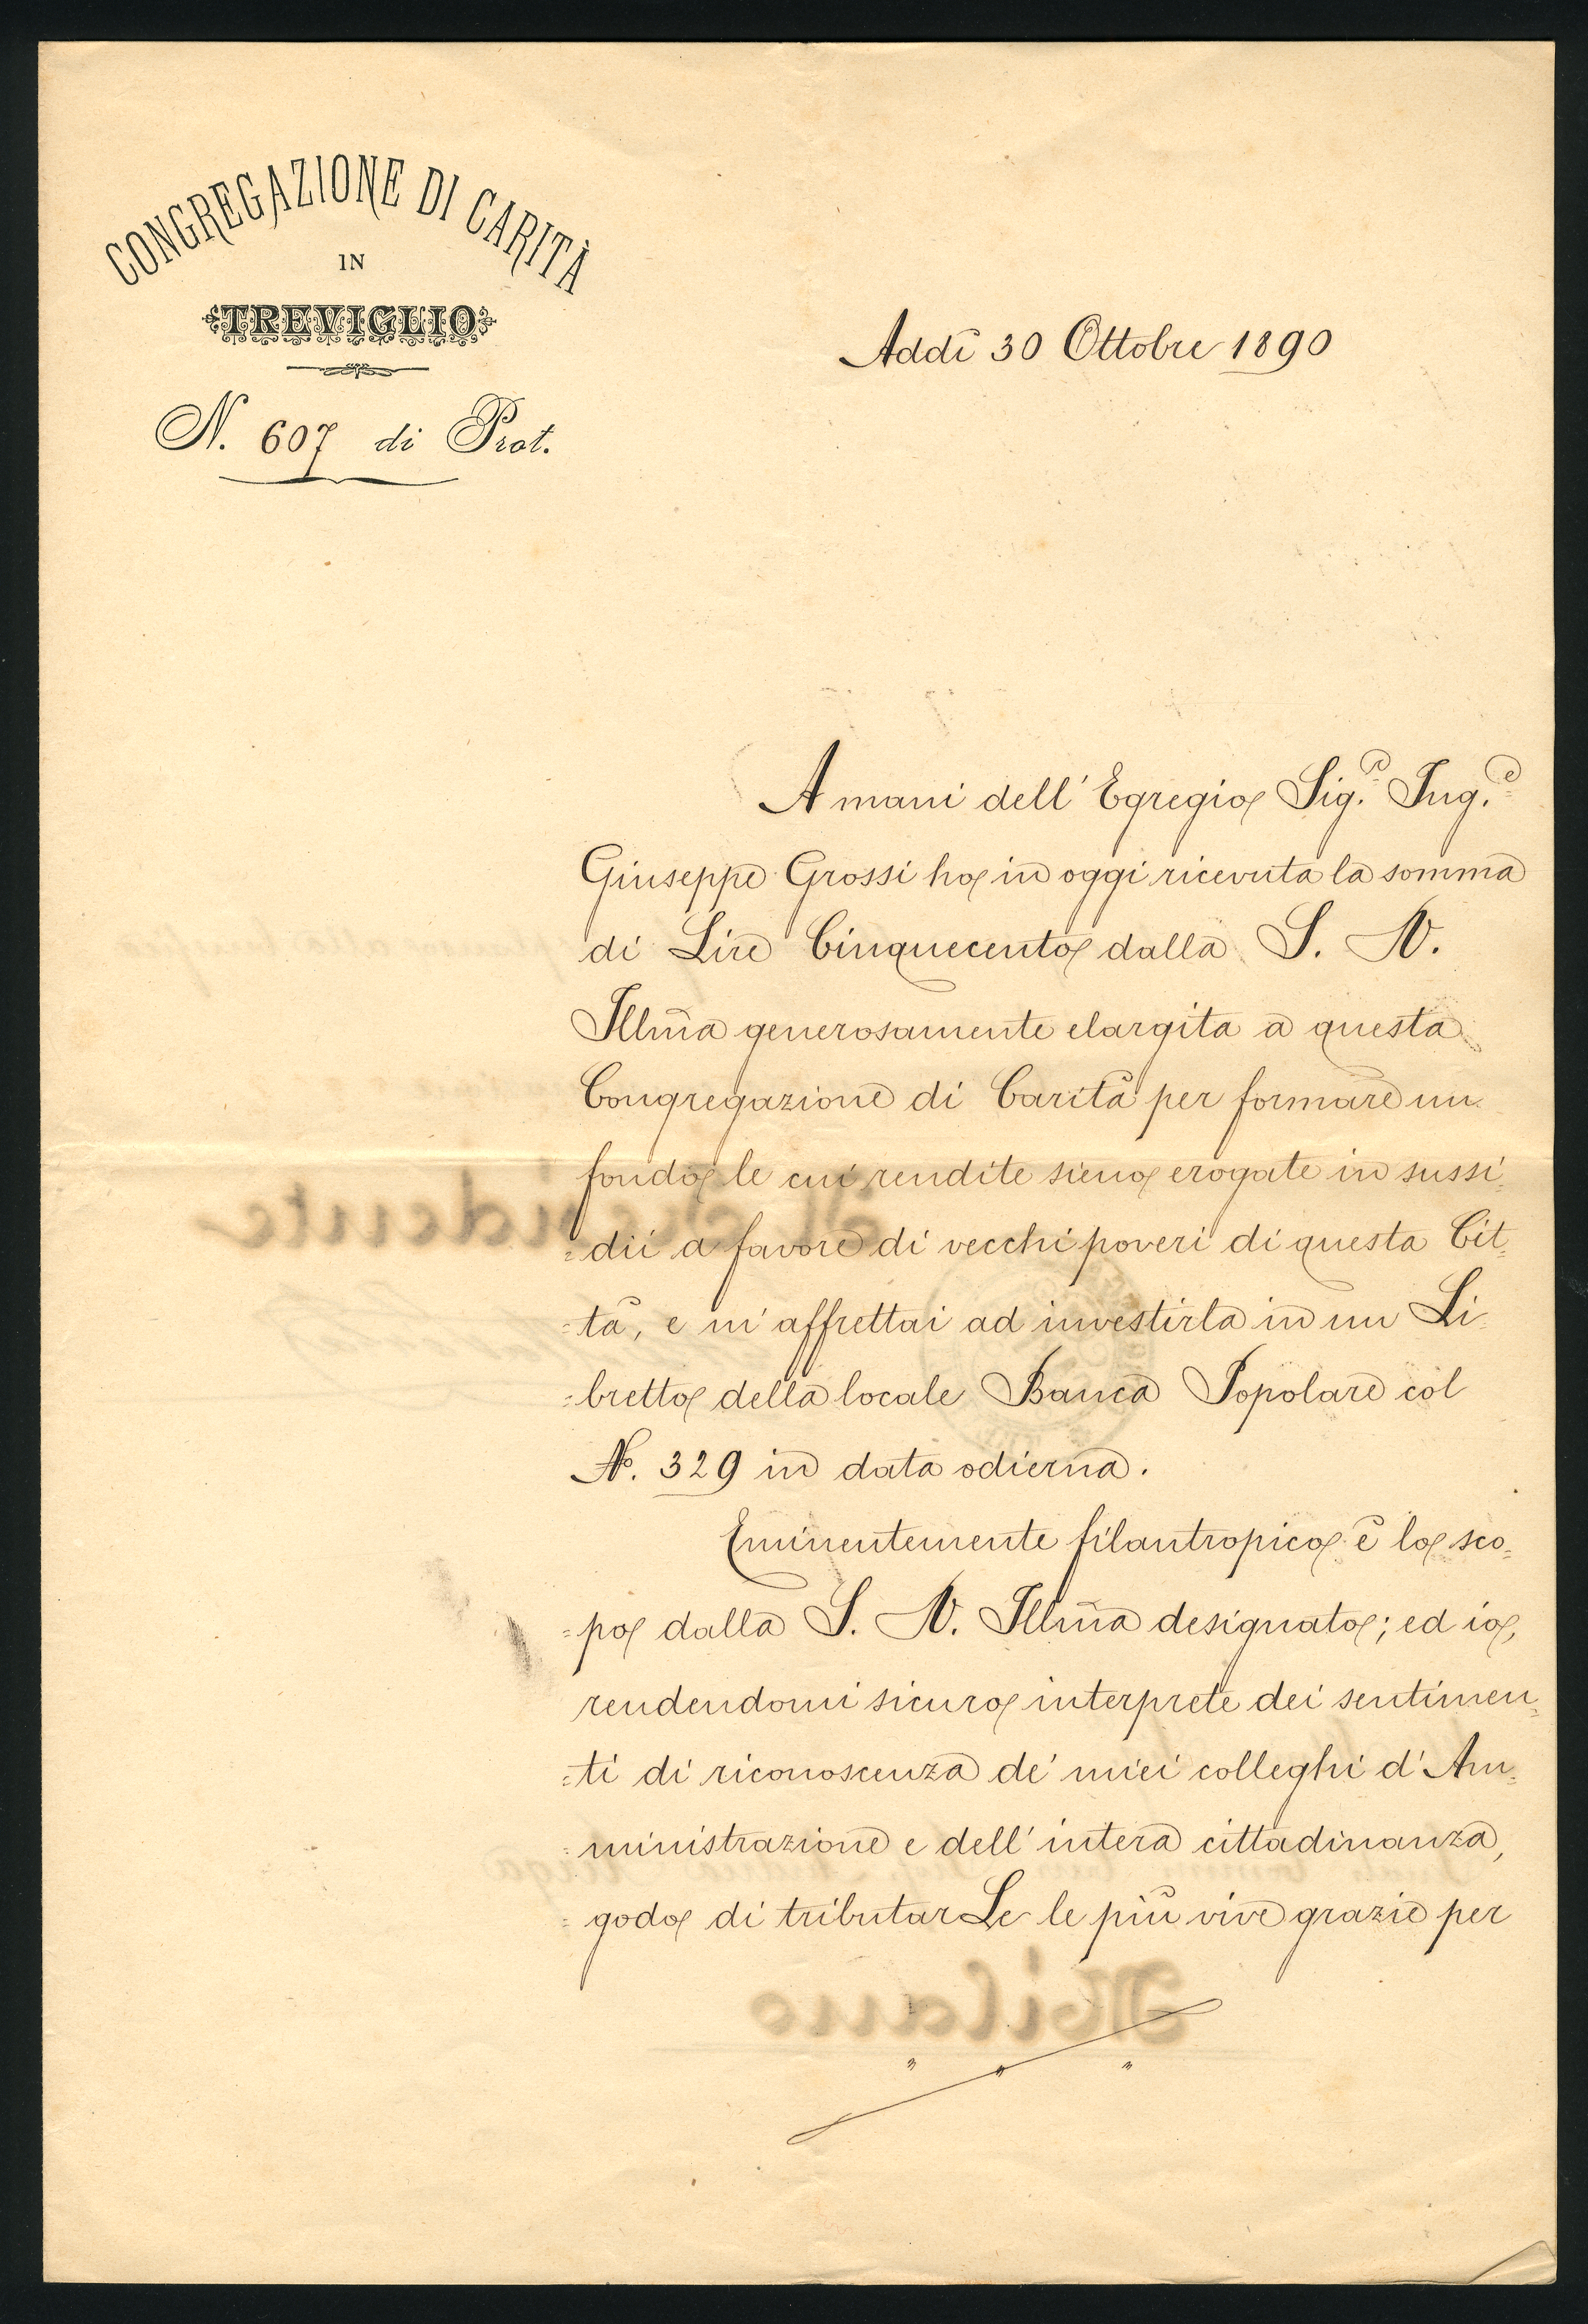 CONGREGAZIONE DI CARITÀ
IN
TREVIGLIO
N. 607 di Prot.
Addì 30 Ottobre 1890
A mani dell' Egregio Sig.r Ing.e
Giuseppe Grossi ho in oggi ricevuta la somma
di Lire Cinquecento dalla S. V.
Illma generosamente elargita a questa
Congregazione di Carità per formare un
fondo le cui rendite sieno erogate in sussi-
=dii a favore di vecchi poveri di questa Cit=
=tà, e m' affrettai ad investirla in un Li-
=bretto della locale Banca Popolare col
No. 329 in data odierna.
Eminentemente filantropico è lo sco=
=po dalla S. V. Illma designato; ed io,
rendendomi sicuro interprete dei sentimen=
=ti di riconoscenza de' miei colleghi d' Am=
=ministrazione e dell' intera cittadinanza,
= godo di tributarLe le più vive grazie per
Milano